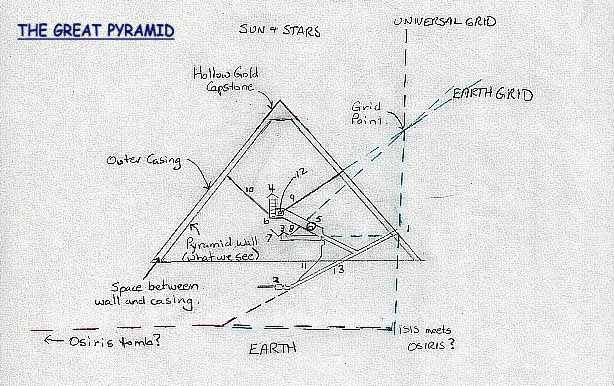 THE GREAT PYRAMID
SUN & STARS
UNIVERSAL GRID
Hollow Gold
Capstone
EARTH GRID
Grid
Point.
Outer Casing
12
4
10
9
6
5
3
8
7
Pyramid wall
(what we see)
11
13
2
Space between
wall and casing.
← Osiris tomb?
EARTH
ISIS meets
OSIRIS?